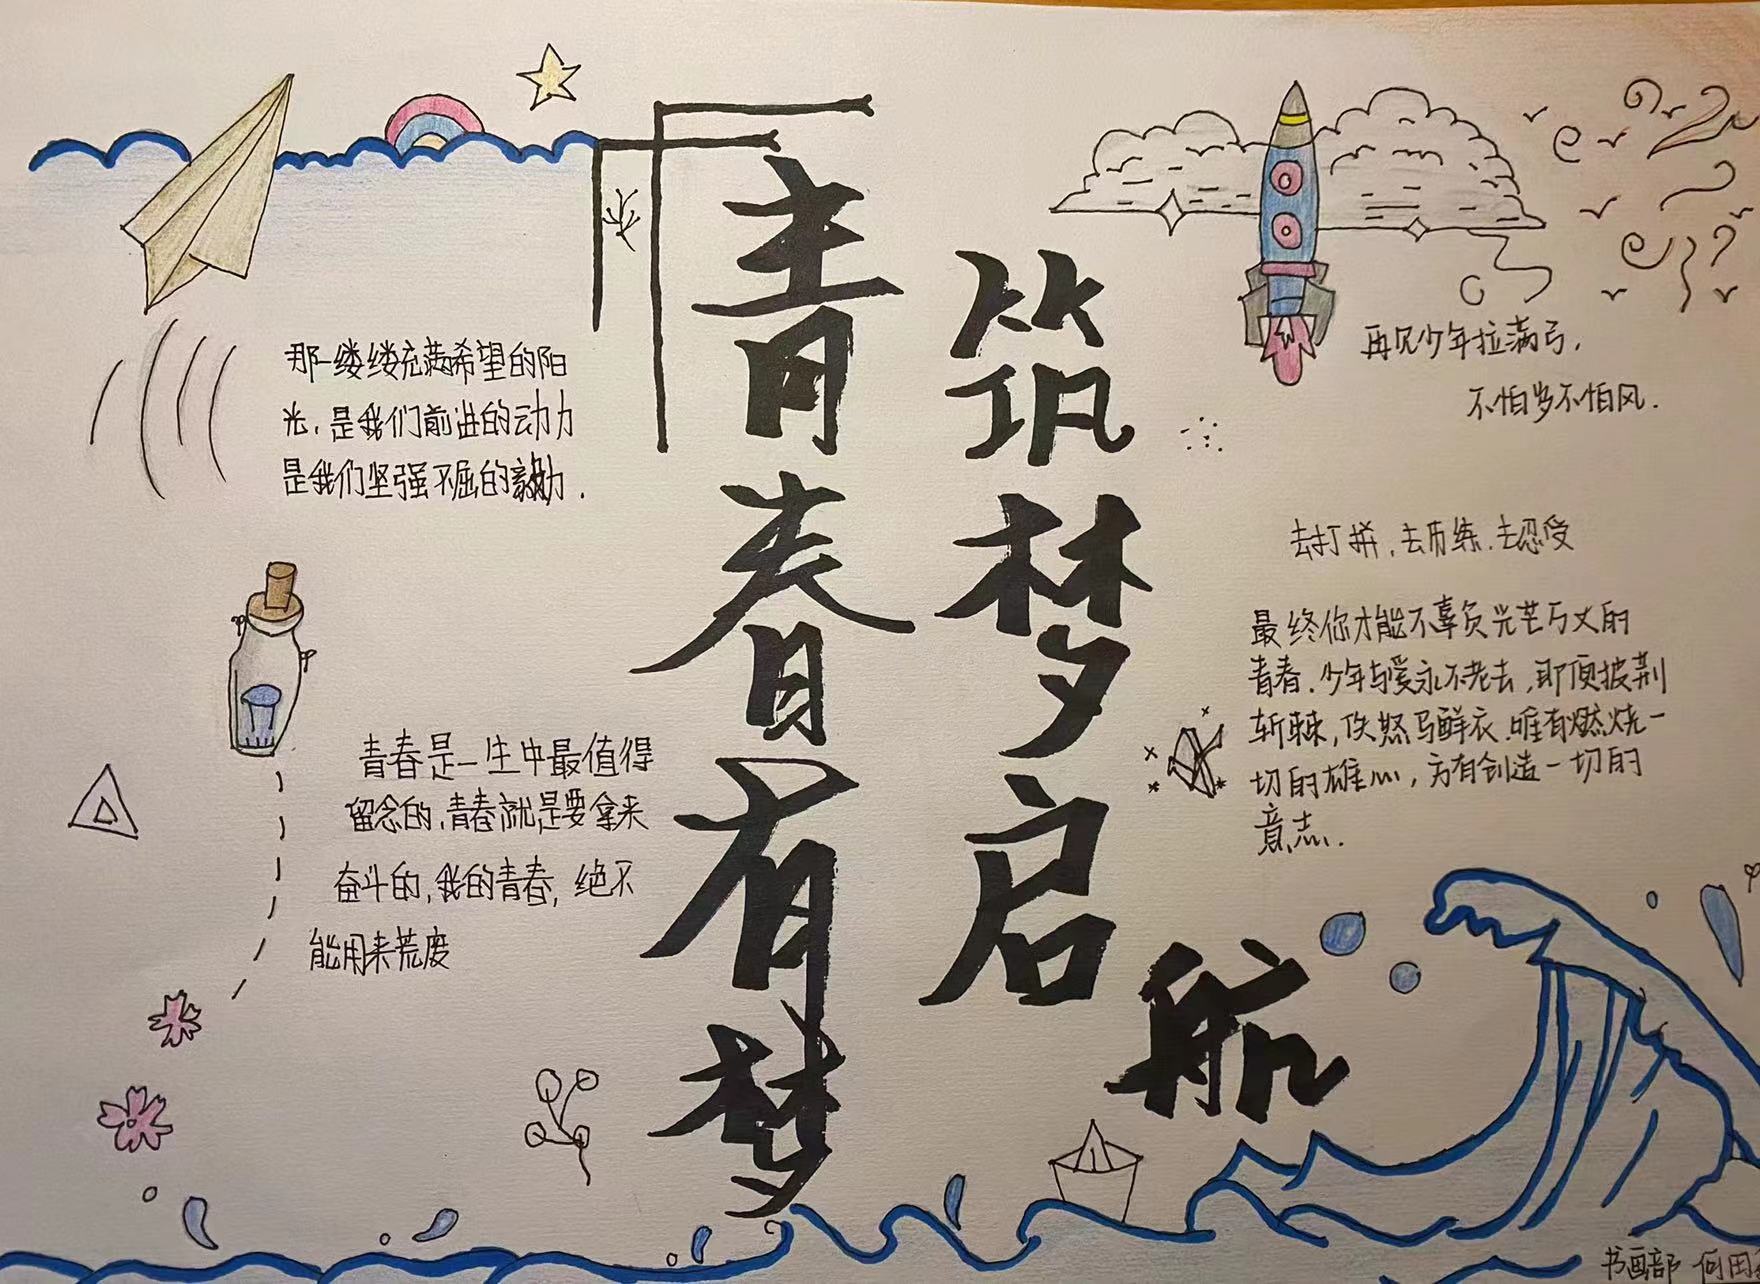 青春有梦
筑梦启航
那一缕缕充满希望的阳
光,是我们前进的动力
是我们坚强不屈的毅力.
青春是一生中最值得
留念的,青春就是要拿来
奋斗的,我的青春,绝不
能用来荒废
再见少年拉满弓,
不怕岁不怕风.
去打拼,去历练.去忍受
最终你才能不辜负光芒万丈的
青春.少年与爱永不老去,即便披荆
斩棘,佚怒马鲜衣.唯有燃烧一
切的雄心,方有创造一切的
意志.
书画部 何田